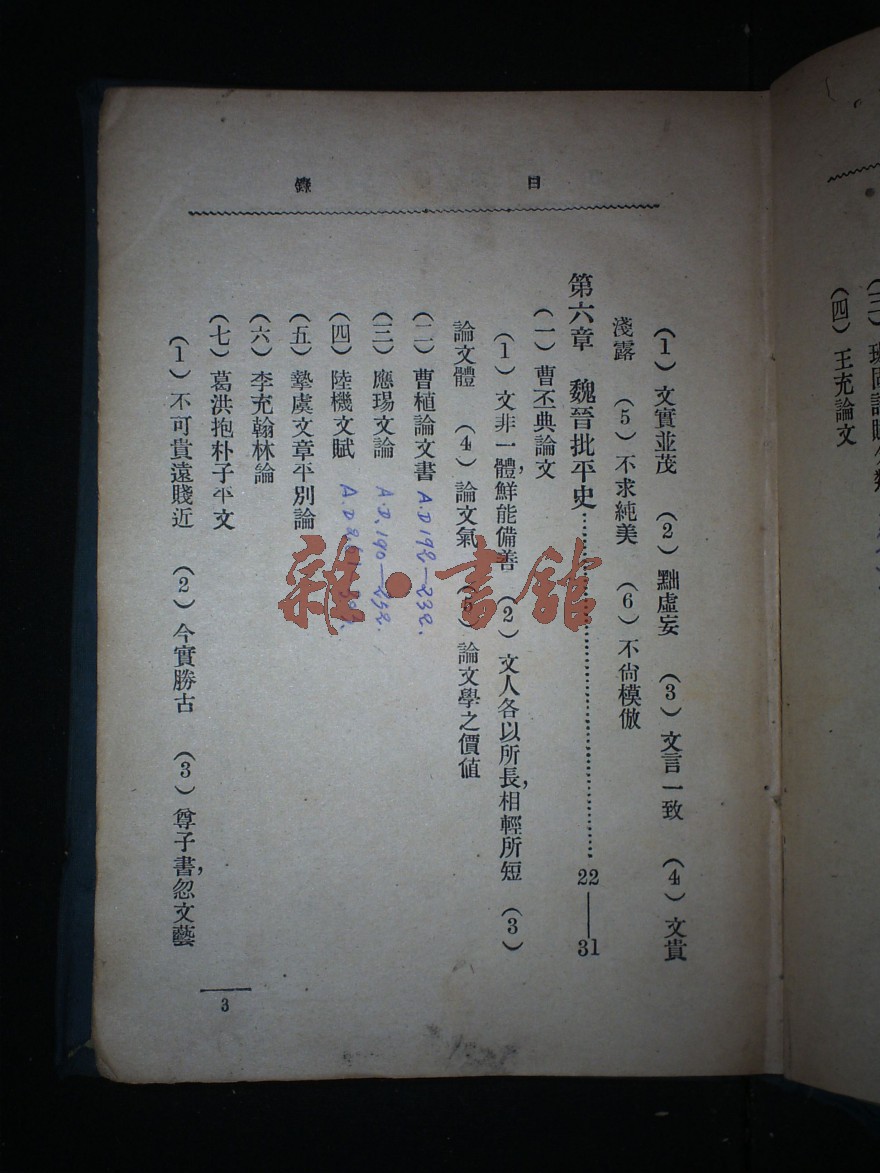 目錄
(1)文實並茂 (2)黜虛妄 (3)文言一致 (4)文貴
淺露 (5)不求純美 (6)不尙模倣
第六章 魏晉批平史……22—31
(一)曹丕典論文
(1)文非一體,鮮能備善 (2)文人各以所長,相輕所短 (3)
論文體 (4)論文氣 (5)論文學之價値
(二)曹植論文書 A.D 192—232.
(三)應瑒文論 A.D. 190—252.
(四)陸機文賦 A.D
(五)摯虞文章平別論
(六)李充翰林論
(七)葛洪抱朴子平文
(1)不可貴遠賤近 (2)今實勝古 (3)尊子書,忽文藝
3
(四)王充論文
雜·書館